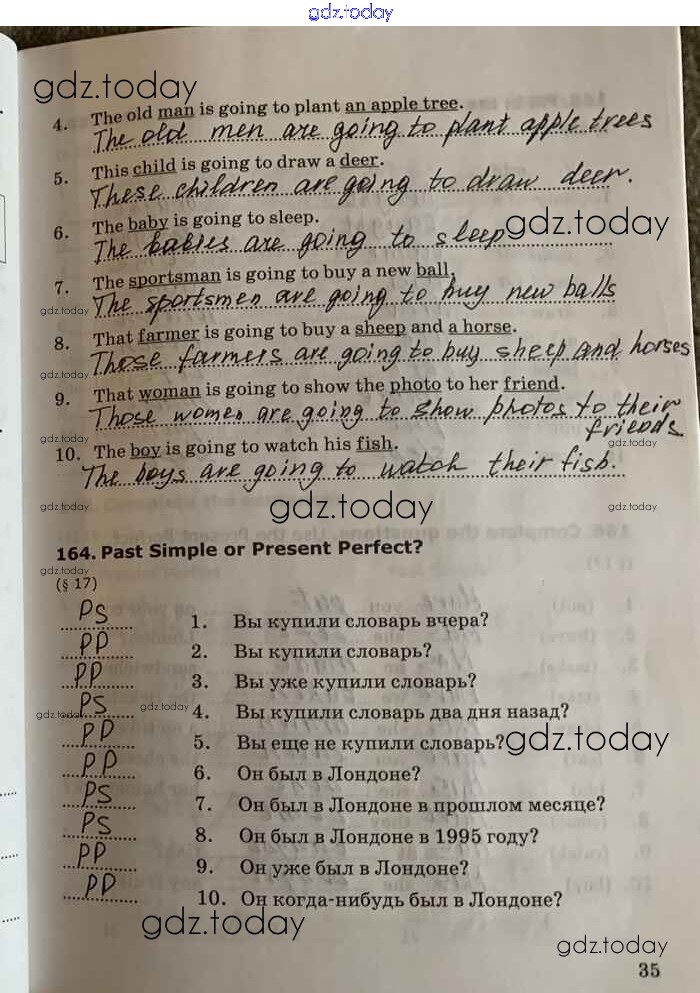 gdz.today
gdz.today
4. The old man is going to plant an apple tree.
The old men are going to plant apple trees
5. This child is going to draw a deer.
These children are going to draw deer.
6. The baby is going to sleep.
gdz.today
The babies are going to sleep
7. The sportsman is going to buy a new ball.
gdz.today
The sportsmen are going to buy new balls
8. That farmer is going to buy a sheep and a horse.
Those farmers are going to buy sheep and horses
gdz.today
9. That woman is going to show the photo to her friend.
Those women are going to show photos to their
friends
gdz.today
gdz.today
10. The boy is going to watch his fish.
The boys are going to watch their fish.
gdz.today
gdz.today
gdz.today
164. Past Simple or Present Perfect?
gdz.today
(§ 17)
PS 1. Вы купили словарь вчера?
PP 2. Вы купили словарь?
PP 3. Вы уже купили словарь?
PS 4. Вы купили словарь два дня назад?
gdz.today
gdz.today
PP 5. Вы еще не купили словарь?
gdz.today
PP 6. Он был в Лондоне?
PS 7. Он был в Лондоне в прошлом месяце?
PS 8. Он был в Лондоне в 1995 году?
PP 9. Он уже был в Лондоне?
PP 10. Он когда-нибудь был в Лондоне?
gdz.today
gdz.today
35